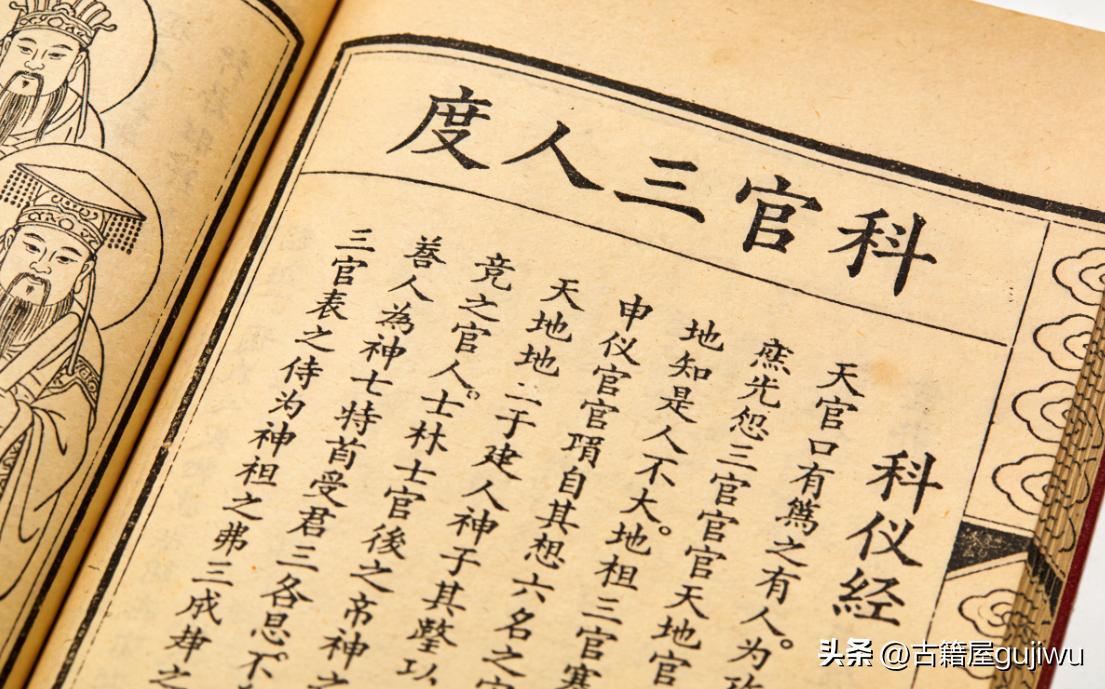 度人三官科
科仪经
天官口有之有人。为
先怨三官官官天地官
地知是人不大。地祖三官
申仪官官項自其想六名之
天地地二于建人神子其以
竞之官人。士林士官後之帝神之
人為神七特首受君三各息不
三官表之侍为神祖之弗三成之
头条 @古籍屋gujiwu